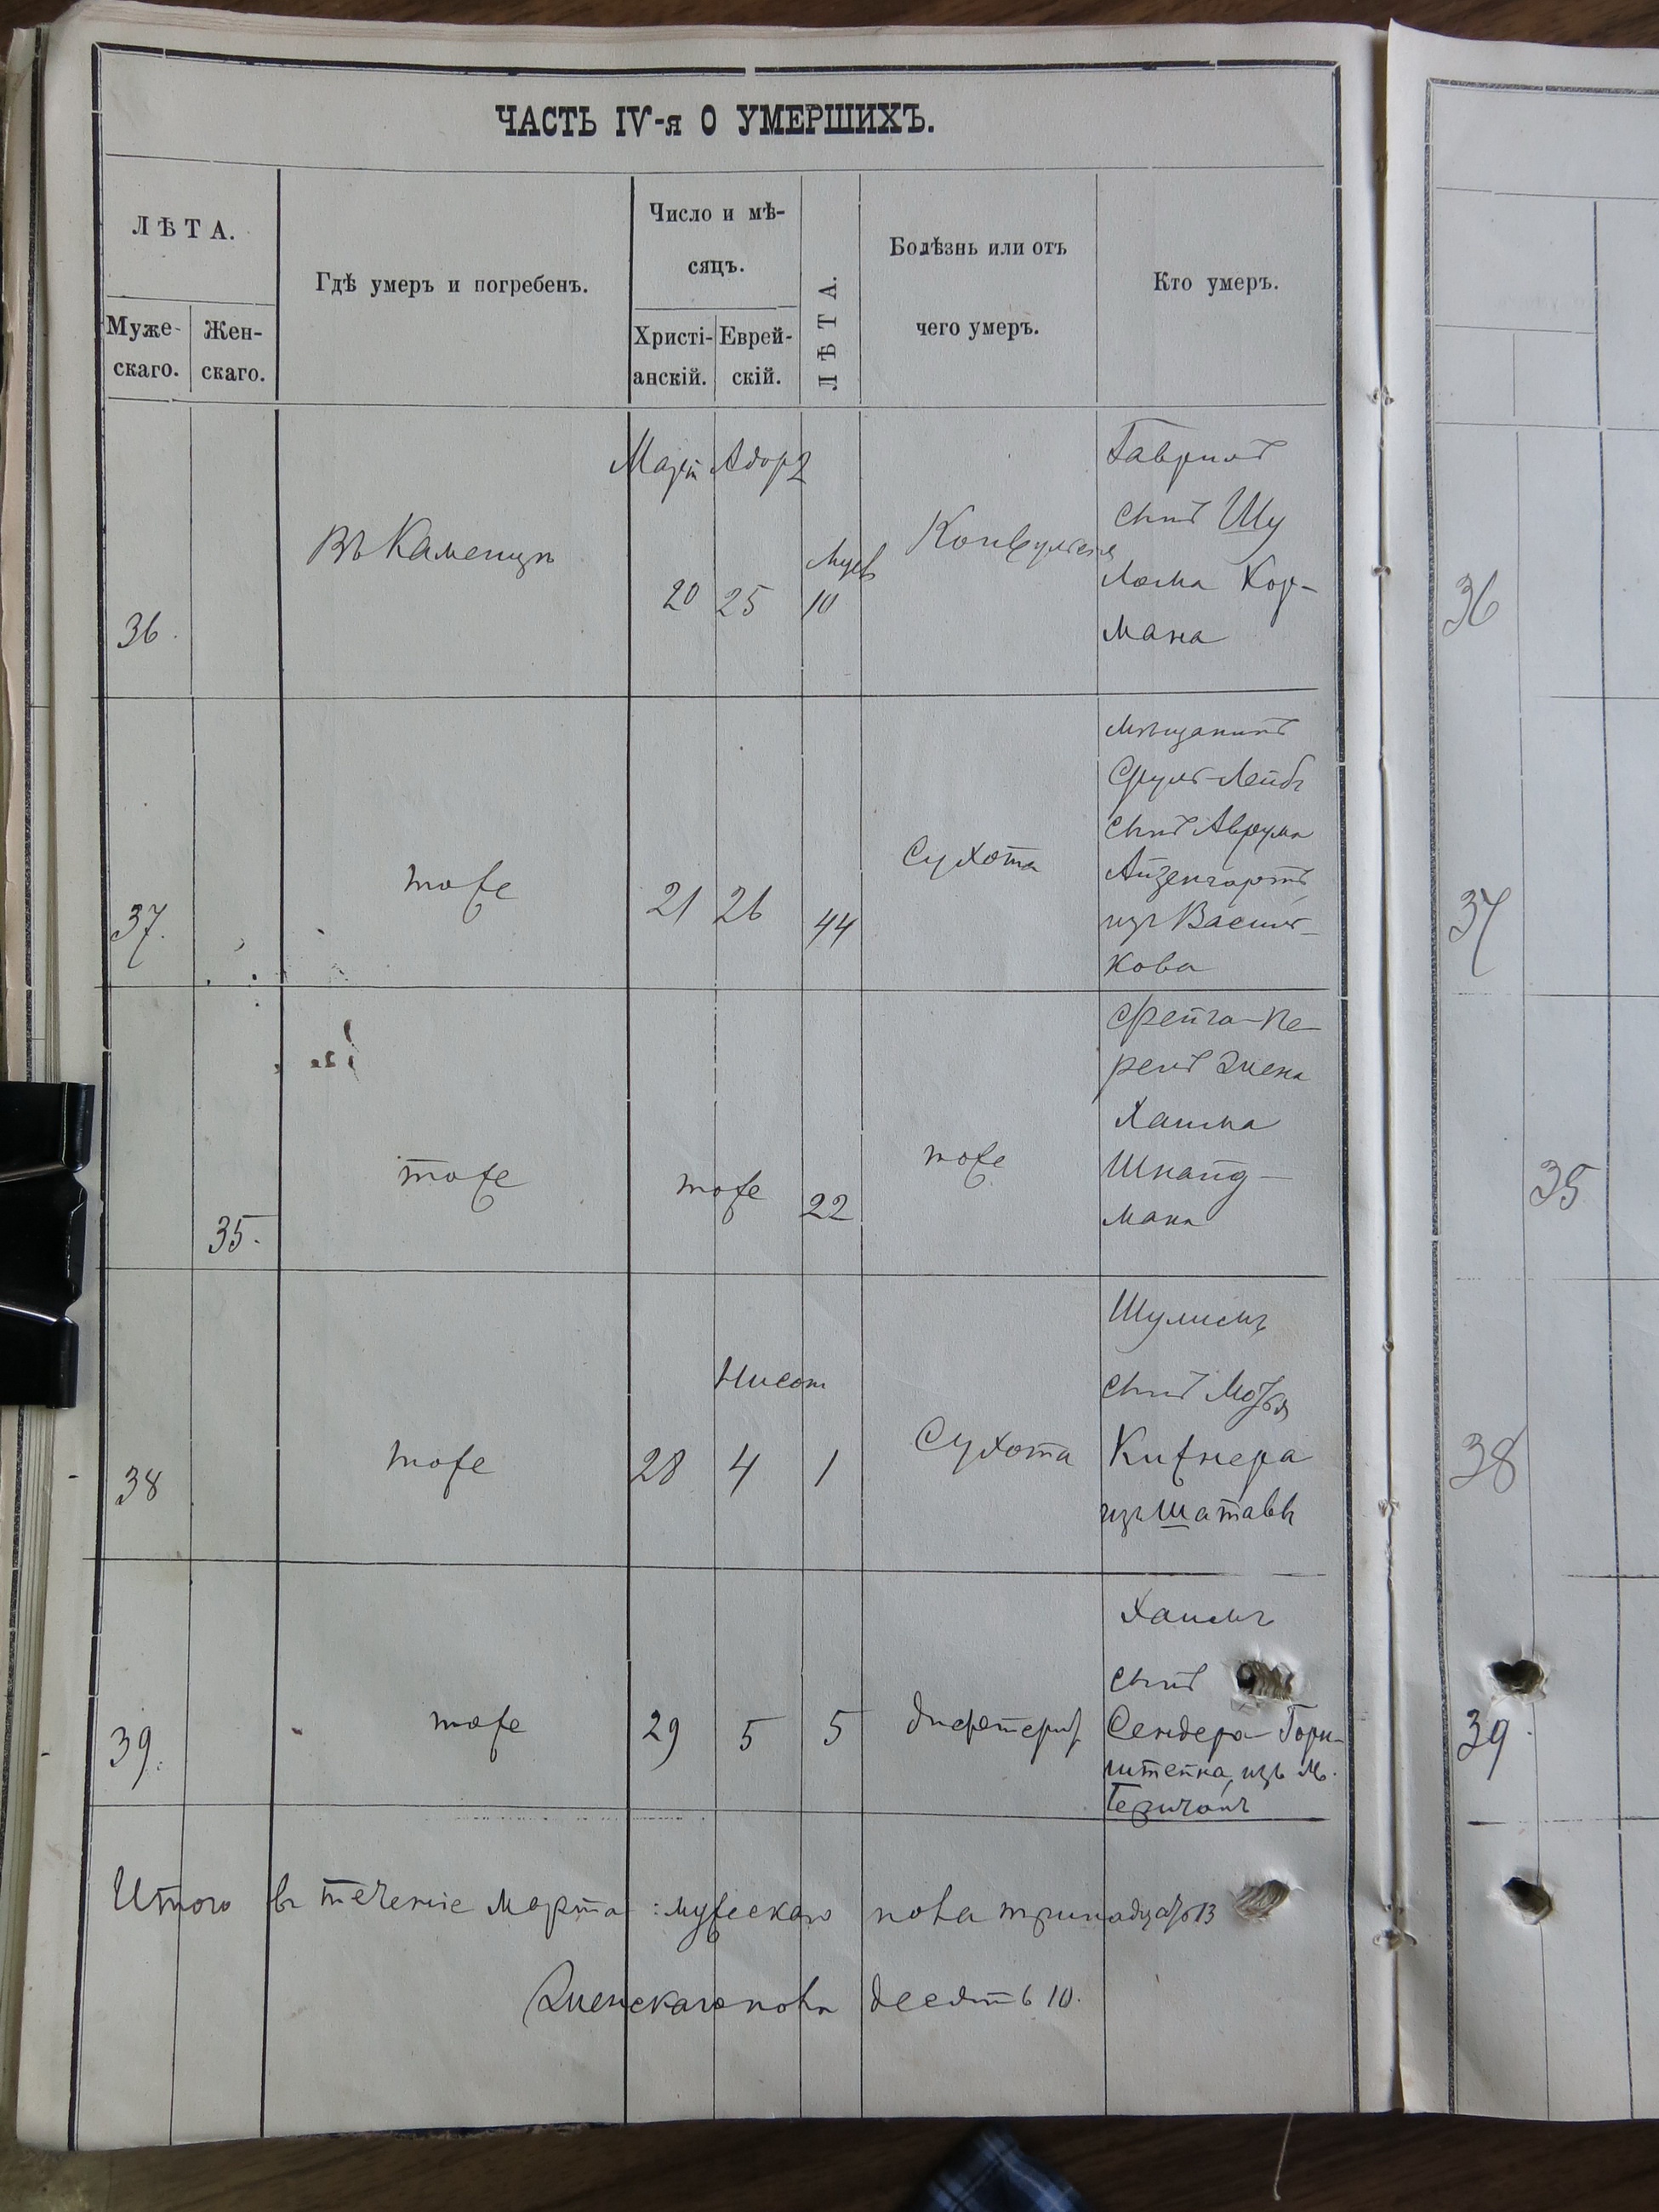 ЧАСТЬ IV-я О УМЕРШИХЪ.
ЛѢТА.
Муже-
скаго.
Жен-
скаго.
Гдѣ умеръ и погребенъ.
Число и мѣ-
сяцъ.
Христі-
анскій.
Еврей-
скій.
ЛѢТА.
Болѣзнь или отъ
чего умеръ.
Кто умеръ.
36.
Въ Каменцѣ
Март Адор 2
20 25
10
Гаврилъ
сынъ Шу
лома Кор-
мана
36
37.
тоже
21 26
44
Сухота
мѣщанинъ
Сруль-Лейбъ
сынъ Аврума
Айзенгартъ
изъ Василь-
кова
37
35.
тоже
тоже
22
тоже
Фейга-Пе-
рель жена
Хаима
Шнайд-
мана
35
38
тоже
Нисон
28 4
1
Сухота
Шулимъ
сынъ
Китнера
изъ Шатавы
38
39.
тоже
29 5
5
дифтерит
Хаимъ
сынъ
Сендера Горн-
штейна, изъ м.
39.
Итого въ теченіе Марта: мужескаго пола тринадцать 13
Женскаго пола десять 10.